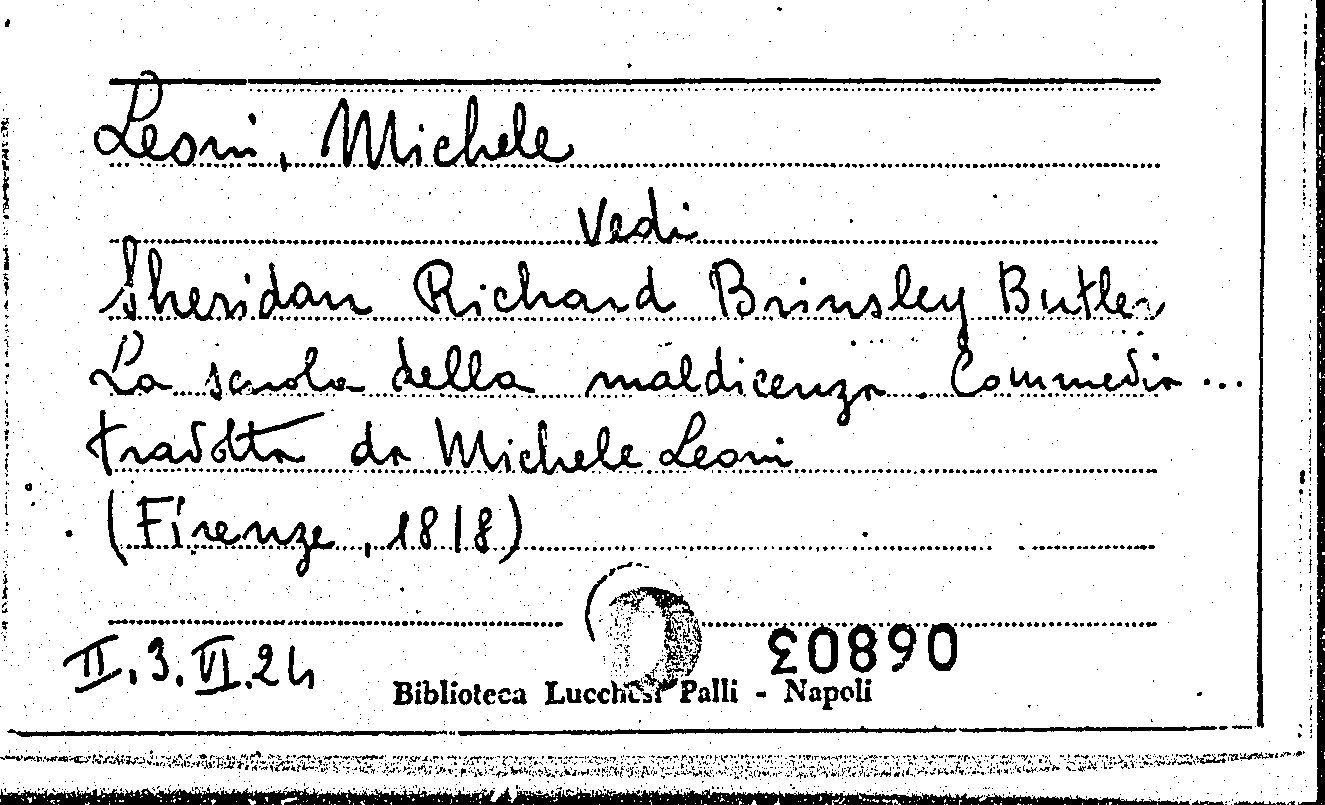 Leoni, Michele
Vedi
Sheridan Richard Brinsley Butler
La scuola della maldicenza. Commedia ...
tradotta da Michele Leoni
(Firenze, 1818)
II.3.VI.24
Biblioteca Lucchesi Palli - Napoli